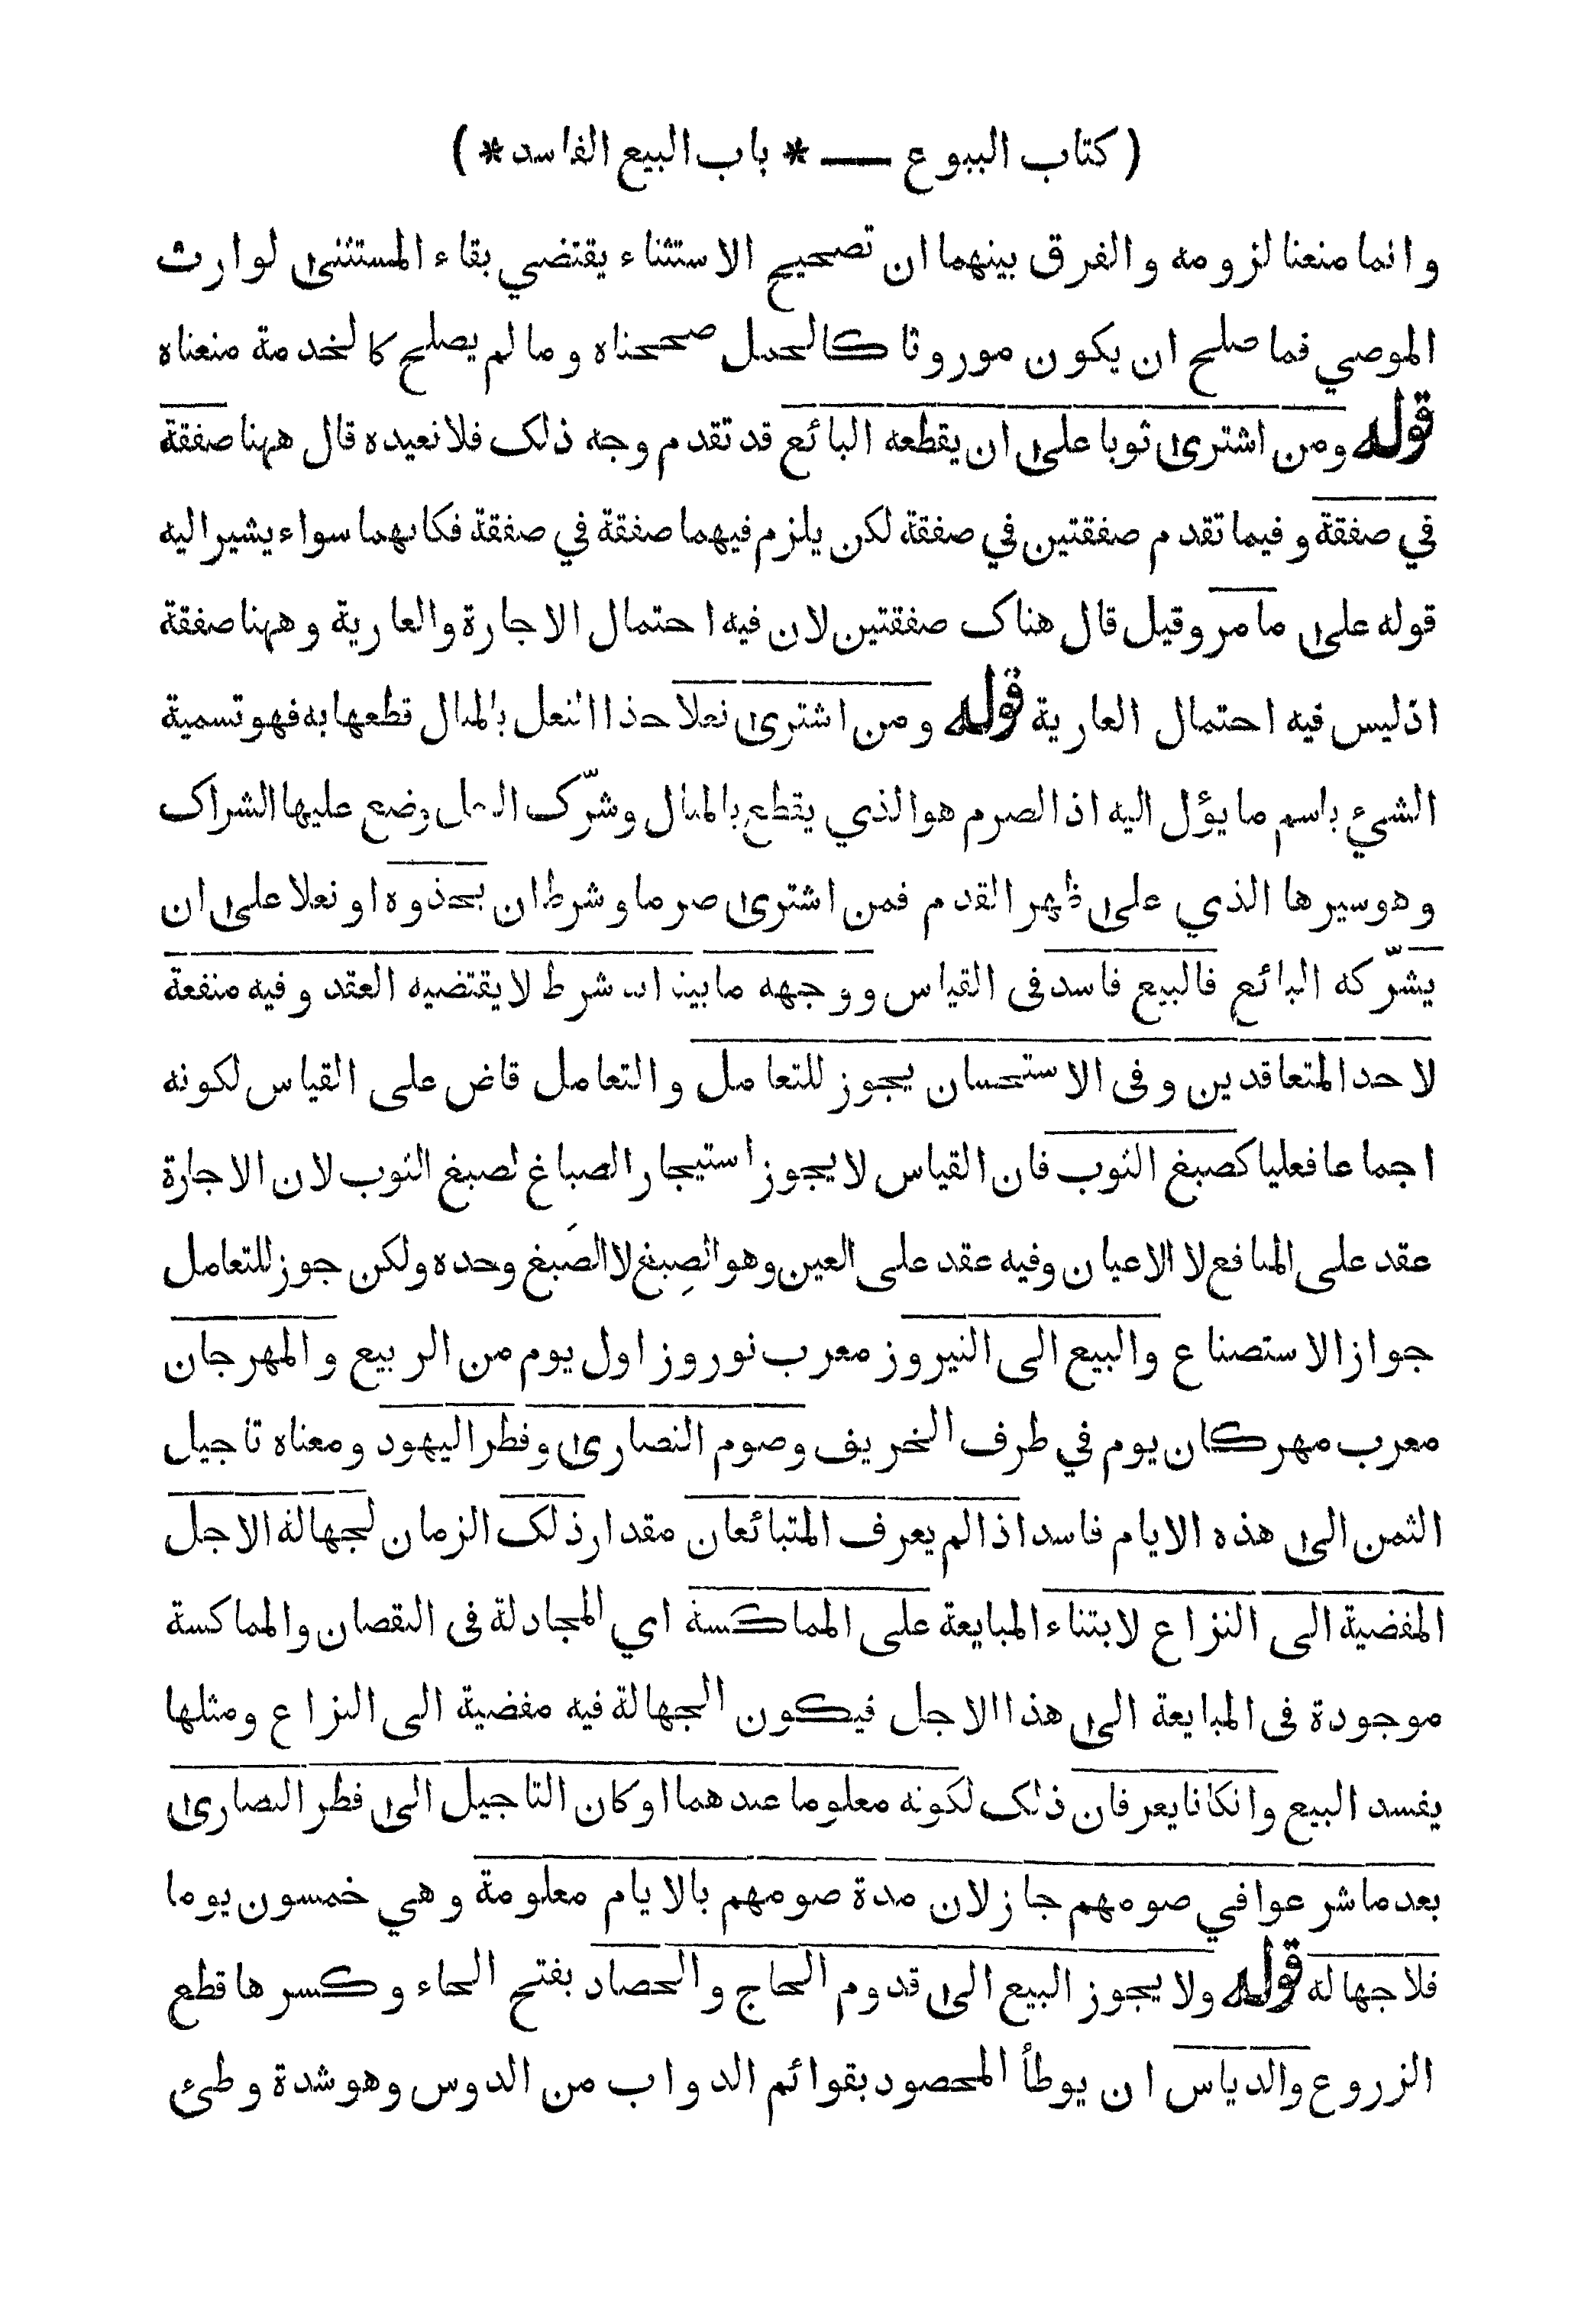 ( كتاب البيوع — * باب البيع الفاسد * )
وانما منعنا لزومه والفرق بينهما ان تصحيح الاستثناء يقتضي بقاء المستثنى لوارث
الموصي فما صلح ان يكون موروثا كالحمل صححناه وما لم يصلح كالخدمة منعناه
قوله ومن اشترى ثوبا على ان يقطعه البائع قد تقدم وجه ذلك فلا نعيده قال ههنا صفقة
في صفقة وفيما تقدم صفقتين في صفقة لكن يلزم فيهما صفقة في صفقة فكانهما سواء يشير اليه
قوله على ما مر وقيل قال هناك صفقتين لان فيه احتمال الاجارة والعارية وههنا صفقة
اذ ليس فيه احتمال العارية قوله ومن اشترى نعلا حذا النعل بالمثال قطعها به فهو تسمية
الشيء باسم ما يؤل اليه اذ الصرم هو الذي يقطع بالمثال وشرّك النعل وضع عليها الشراك
وهو سيرها الذي على ظهر القدم فمن اشترى صرما وشرط ان يحذوه او نعلا على ان
يشرّكه البائع فالبيع فاسد في القياس ووجهه ما بينا انه شرط لا يقتضيه العقد وفيه منفعة
لاحد المتعاقدين وفى الاستحسان يجوز للتعامل والتعامل قاض على القياس لكونه
اجماعا فعليا كصبغ الثوب فان القياس لا يجوز استيجار الصباغ لصبغ الثوب لان الاجارة
عقد على المنافع لا الاعيان وفيه عقد على العين وهو الصِبغ لا الصَبغ وحده ولكن جوز للتعامل
جواز الاستصناع والبيع الى النيروز معرب نوروز اول يوم من الربيع والمهرجان
معرب مهركان يوم في طرف الخريف وصوم النصارى وفطر اليهود ومعناه تاجيل
الثمن الى هذه الايام فاسد اذا لم يعرف المتبائعان مقدار ذلك الزمان لجهالة الاجل
المفضية الى النزاع لابتناء المبايعة على المماكسة اي المجادلة فى النقصان والمماكسة
موجودة فى المبايعة الى هذا الاجل فيكون الجهالة فيه مفضية الى النزاع ومثلها
يفسد البيع وانكانا يعرفان ذلك لكونه معلوما عندهما او كان التاجيل الى فطر النصارى
بعد ما شرعوا في صومهم جاز لان مدة صومهم بالايام معلومة وهي خمسون يوما
فلا جهالة قوله ولا يجوز البيع الى قدوم الحاج والحصاد بفتح الحاء وكسرها قطع
الزروع والدياس ان يوطأ المحصود بقوائم الدواب من الدوس وهو شدة وطئ